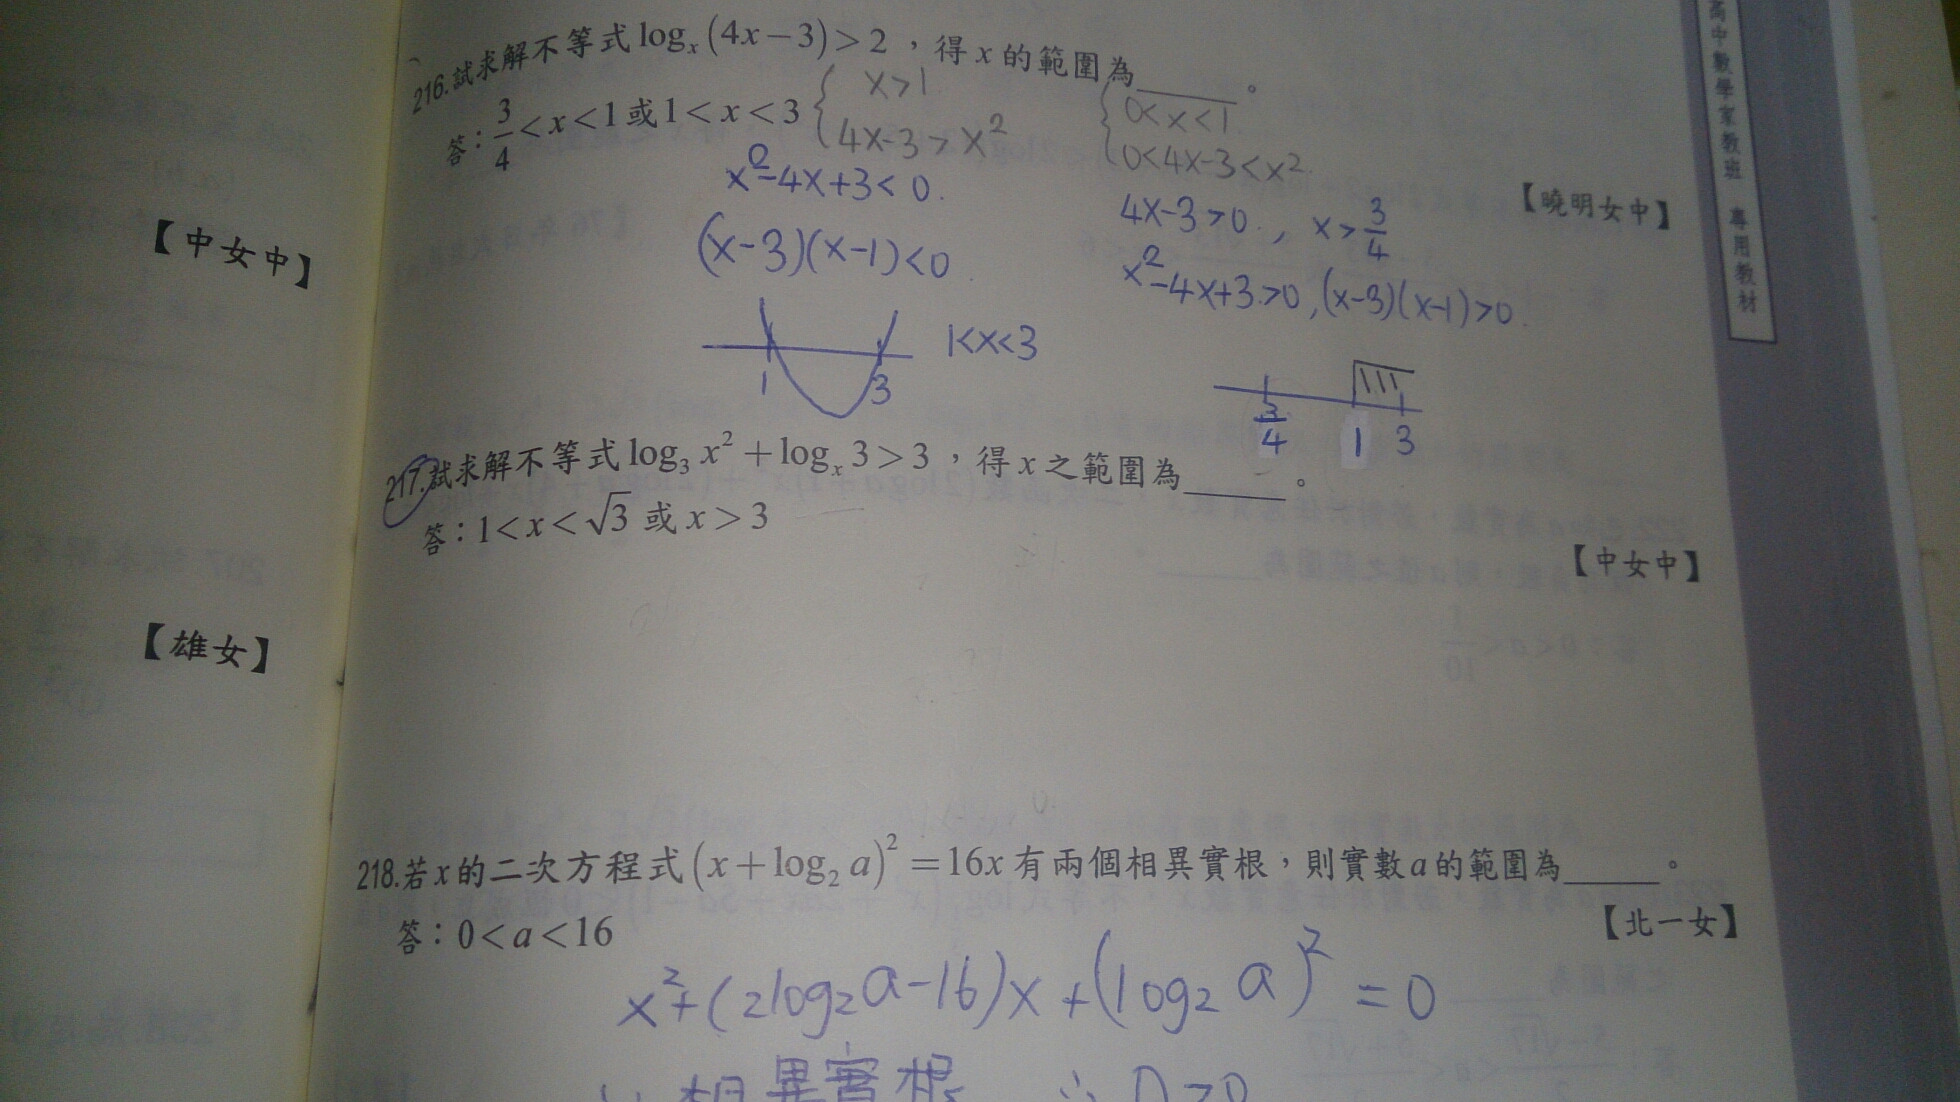 216.試求解不等式 logₓ(4x−3)>2，得 x 的範圍為______。
答：3/4<x<1 或 1<x<3
{ x>1
4x-3>x²
{ 0<x<1
0<4x-3<x²
【曉明女中】
x²-4x+3<0.
(x-3)(x-1)<0
1 3
1<x<3
4x-3>0. , x>3/4
x²-4x+3>0,(x-3)(x-1)>0.
3/4 1 3
217.試求解不等式 log₃x²+logₓ3>3，得 x 之範圍為______。
答：1<x<√3 或 x>3
【中女中】
218.若 x 的二次方程式 (x+log₂a)²=16x 有兩個相異實根，則實數 a 的範圍為______。
答：0<a<16
【北一女】
x²+(2log₂a-16)x+(log₂a)²=0
∵相異實根 ∴D>0
【中女中】
【雄女】
高中數學家教班 專用教材